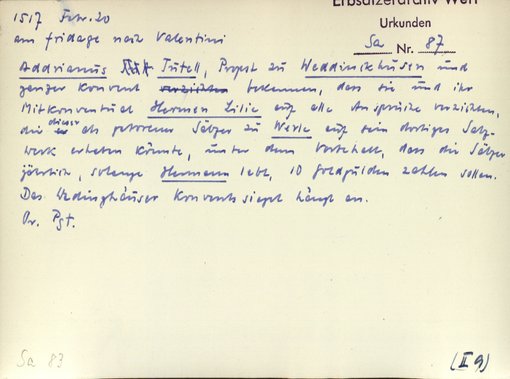 Erbsälzerarchiv Werl
Urkunden
Sa Nr. 87
1517 Febr. 20
am fridage nach Valentini
Addrianus Tutell, Propst zu Weddinckhusen und
ganzer Konvent bekennen, dass sie und ihr
Mitkonventual Hermen Lilie auf alle Ansprüche verzichten,
die dieser als geborener Sälzer zu Werle auf sein dortiges Salz-
werk erheben könnte, unter dem Vorbehalt, dass die Sälzer
jährlich, solange Hermann lebt, 10 Goldgulden zahlen sollen.
Das Wedinghäuser Konventssiegel hängt an.
Or. Pgt.
Sa 83
(II 9)